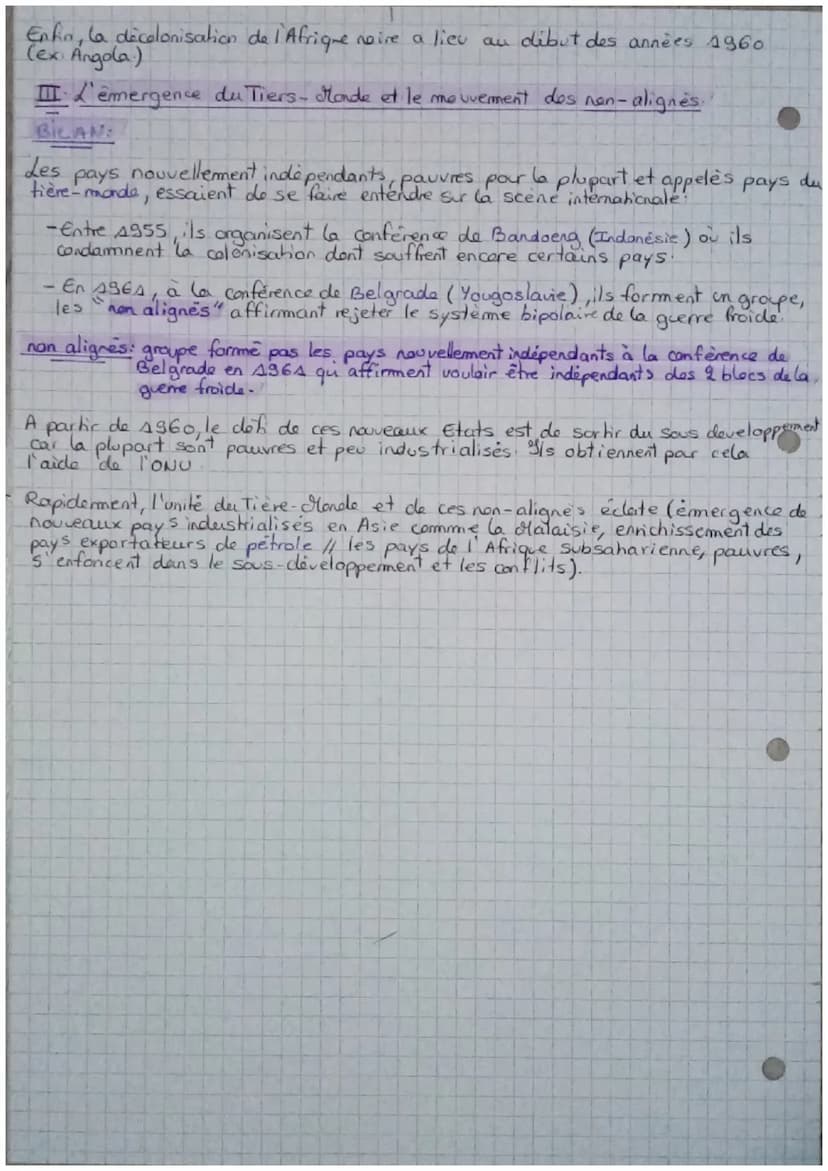 Enfin, la décolonisation de l'Afrique noire a lieu au début des années 1960
(ex: Angola.)
III. L'émergence du Tiers-Monde et le mouvement des non-alignés.
BILAN:
Les pays nouvellement indépendants, pauvres pour la plupart et appelés pays du
tière-monde, essaient de se faire entendre sur la scène internationale:
-Entre 1955, ils organisent la conférence de Bandoeng (Indonésie) où ils
condamnent la colonisation dont souffrent encore certains pays.
- En 1961, à la conférence de Belgrade (Yougoslavie), ils forment un groupe,
les "non alignés" affirmant rejeter le système bipolaire de la guerre froide.
non alignés: groupe formé pas les pays nouvellement indépendants à la conférence de
Belgrade en 1961 qu affirment vouloir être indépendants des 2 blocs de la
guerre froide.
A partir de 1960, le défi de ces nouveaux Etats est de sortir du sous developpement
car la plupart sont pauvres et peu industrialisés. Ils obtiennent par cela
l'aide de l'ONU.
Rapidemment, l'unité du Tière-Monde et de ces non-alignés éclate (émmergence de
nouveaux pays industrialisés en Asie commme la Malaisie, enrichissement des
pays exportateurs de pétrole // les pays de l'Afrique subsaharienne, pauvres,
s'enfoncent dans le sous-développement et les conflits).